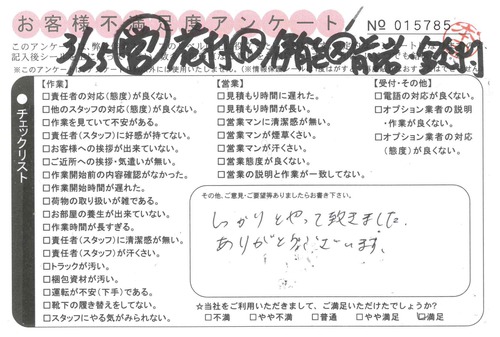 お客様不満足度アンケート
№ 015785
【作業】
□責任者の対応(態度)が良くない。
□他のスタッフの対応(態度)が良くない。
□作業を見ていて不安がある。
□責任者(スタッフ)に好感が持てない。
□お客様への挨拶が出来ていない。
□ご近所への挨拶・気遣いが無い。
□作業開始前の内容確認がなかった。
□作業開始時間が遅れた。
□荷物の取り扱いが雑である。
□お部屋の養生が出来ていない。
□作業時間が長すぎる。
□責任者(スタッフ)に清潔感が無い。
□責任者(スタッフ)が汗くさい。
□トラックが汚い。
□梱包資材が汚い。
□運転が不安(下手)である。
□靴下の履き替えをしてない。
□スタッフにやる気がみられない。
【営業】
□見積もり時間に遅れた。
□見積もり時間が長い。
□営業マンに清潔感が無い。
□営業マンが煙草くさい。
□営業マンが汗くさい。
□営業態度が良くない。
□営業の説明と作業が一致してない。
【受付・その他】
□電話の対応が良くない。
□オプション業者の説明
・作業が良くない。
□オプション業者の対応
(態度)が良くない。
チェックリスト
その他、ご意見・ご要望等ありましたらお書き下さい。
しっかりとやって頂きました。
ありがとうございます。
☆当社をご利用いただきまして、ご満足いただけたでしょうか?
□不満 □やや不満 □普通 □やや満足 ☑満足